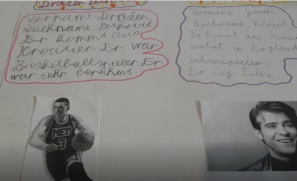 Dražen
Vorname: Dražen
Nachname: Petrović
Er kommt aus
Kroatien. Er war
Basketballspieler. Er
war sehr berühmt.
Vorname: Goran
Nachname: Višnjić
Er kommt aus
wohnt in England
Schauspieler.
Er mag Filme.
NETS
3